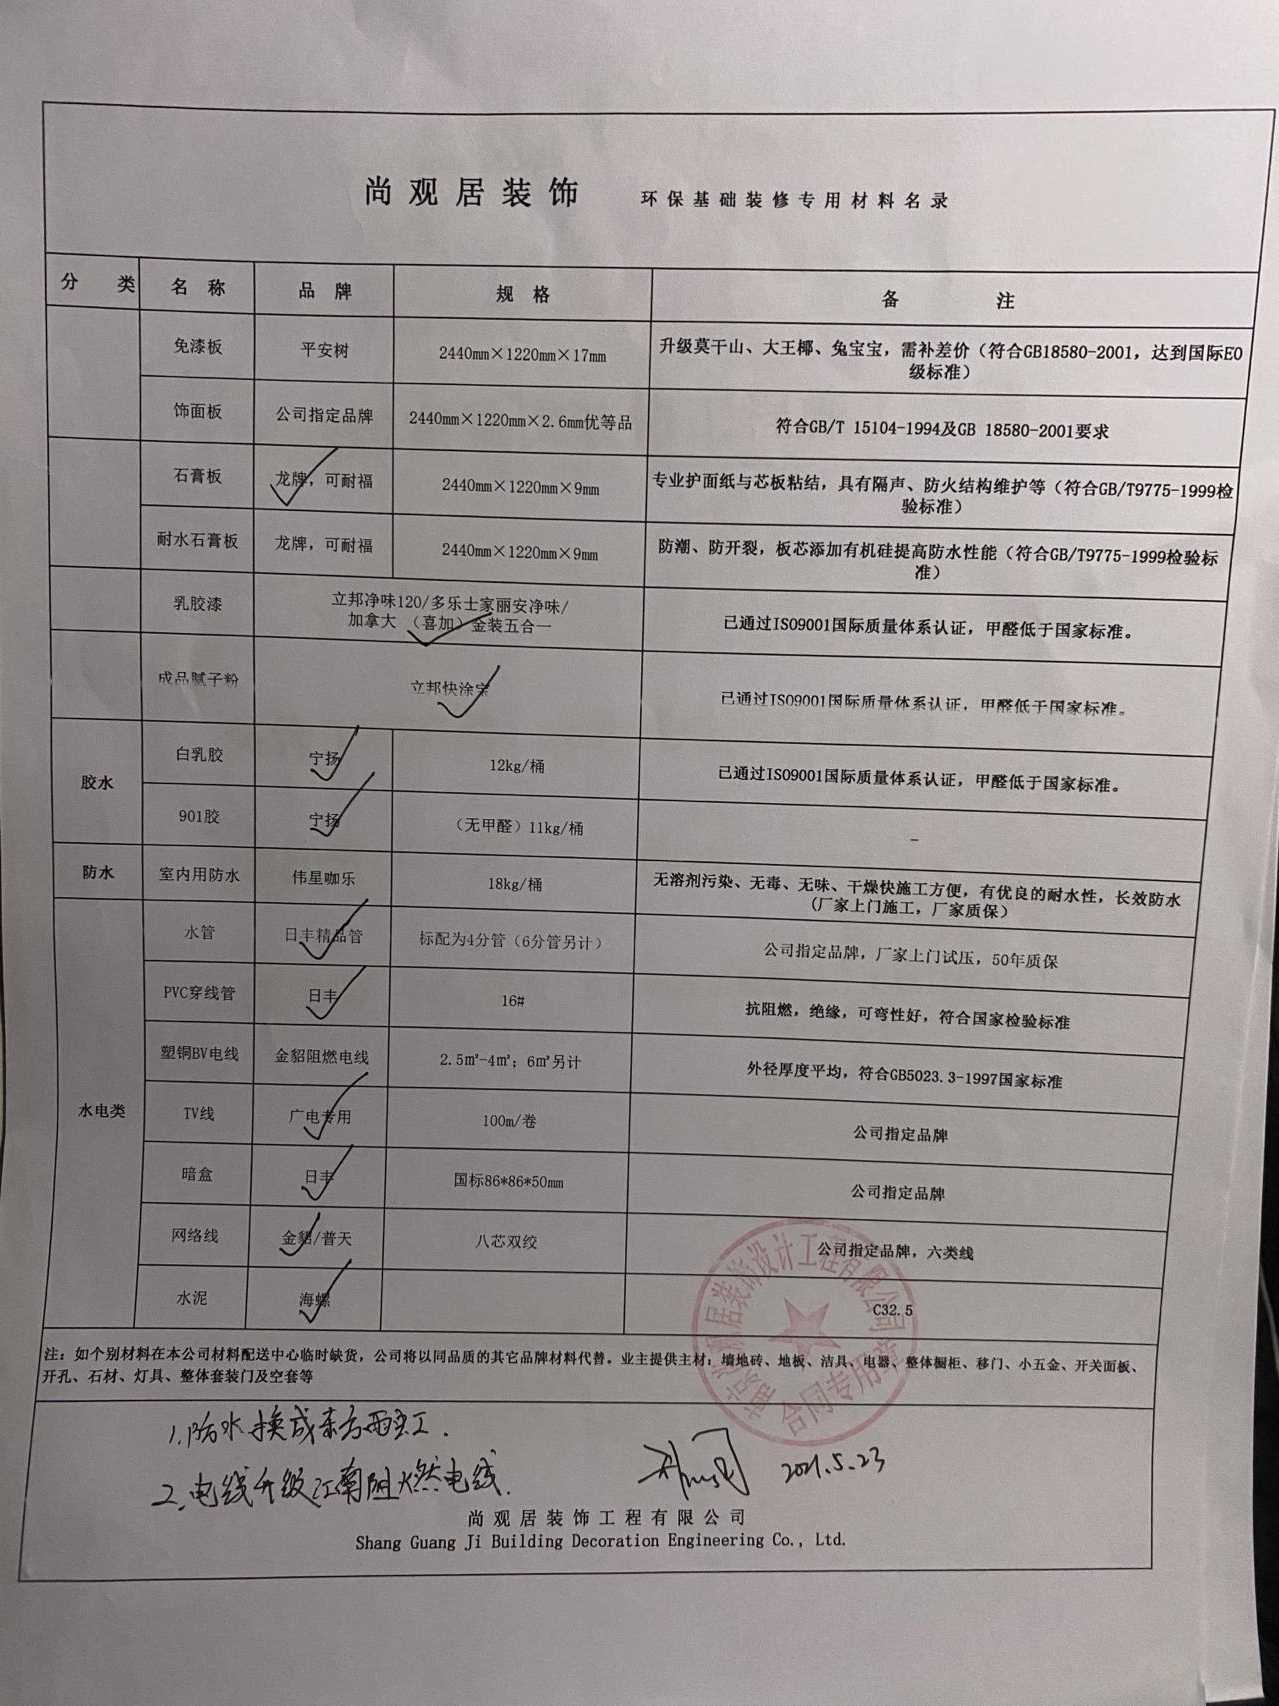 尚观居装饰 环保基础装修专用材料名录
分 类 名 称 品 牌 规 格 备 注
免漆板 平安树 2440mm×1220mm×17mm 升级莫干山、大王椰、兔宝宝，需补差价（符合GB18580-2001，达到国际E0
级标准）
饰面板 公司指定品牌 2440mm×1220mm×2.6mm优等品 符合GB/T 15104-1994及GB 18580-2001要求
石膏板 龙牌，可耐福 2440mm×1220mm×9mm 专业护面纸与芯板粘结，具有隔声、防火结构维护等（符合GB/T9775-1999检
验标准）
耐水石膏板 龙牌，可耐福 2440mm×1220mm×9mm 防潮、防开裂，板芯添加有机硅提高防水性能（符合GB/T9775-1999检验标
准）
乳胶漆 立邦净味120/多乐士家丽安净味/
加拿大 （喜加）金装五合一 已通过ISO9001国际质量体系认证，甲醛低于国家标准。
成品腻子粉 立邦快涂宝 已通过ISO9001国际质量体系认证，甲醛低于国家标准。
胶水 白乳胶 宁扬 12kg/桶 已通过ISO9001国际质量体系认证，甲醛低于国家标准。
901胶 宁扬 （无甲醛）11kg/桶 -
防水 室内用防水 伟星咖乐 18kg/桶 无溶剂污染、无毒、无味、干燥快施工方便，有优良的耐水性，长效防水
（厂家上门施工，厂家质保）
水电类 水管 日丰精品管 标配为4分管（6分管另计） 公司指定品牌，厂家上门试压，50年质保
PVC穿线管 日丰 16# 抗阻燃，绝缘，可弯性好，符合国家检验标准
塑铜BV电线 金貂阻燃电线 2.5㎡-4㎡；6㎡另计 外径厚度平均，符合GB5023.3-1997国家标准
TV线 广电专用 100m/卷 公司指定品牌
暗盒 日丰 国标86*86*50mm 公司指定品牌
网络线 金貂/普天 八芯双绞 公司指定品牌，六类线
水泥 海螺 C32.5
注：如个别材料在本公司材料配送中心临时缺货，公司将以同品质的其它品牌材料代替。业主提供主材：墙地砖、地板、洁具、电器、整体橱柜、移门、小五金、开关面板、
开孔、石材、灯具、整体套装门及空套等
南京尚观居装饰设计工程有限公司
合同专用章
1.防水换成东方雨虹.
2.电线升级江南阻燃电线.
2021.5.23
尚观居装饰工程有限公司
Shang Guang Ji Building Decoration Engineering Co., Ltd.